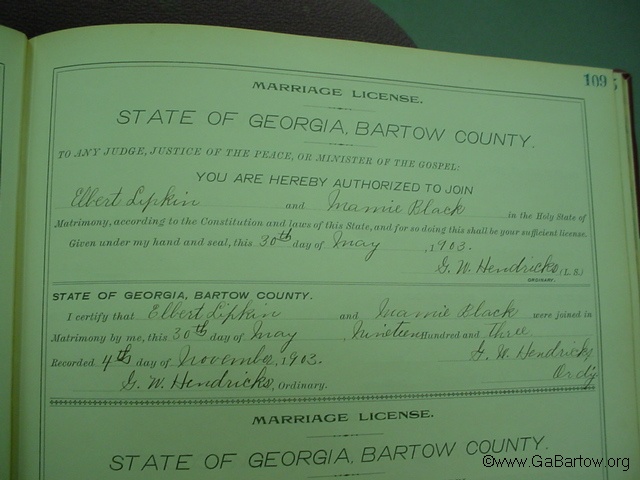 109
MARRIAGE LICENSE.
STATE OF GEORGIA, BARTOW COUNTY.
TO ANY JUDGE, JUSTICE OF THE PEACE, OR MINISTER OF THE GOSPEL:
YOU ARE HEREBY AUTHORIZED TO JOIN
Elbert Lipkin and Mamie Black in the Holy State of
Matrimony, according to the Constitution and laws of this State, and for so doing this shall be your sufficient license.
Given under my hand and seal, this 30th day of May, 1903.
G. W. Hendricks (L. S.)
ORDINARY.
STATE OF GEORGIA, BARTOW COUNTY.
I certify that Elbert Lipkin and Mamie Black were joined in
Matrimony by me, this 30th day of May, Nineteen Hundred and Three
Recorded 4th day of November, 1903. G. W. Hendricks
G. W. Hendricks, Ordinary. Ordy
MARRIAGE LICENSE.
STATE OF GEORGIA, BARTOW COUNTY.
©www.GaBartow.org